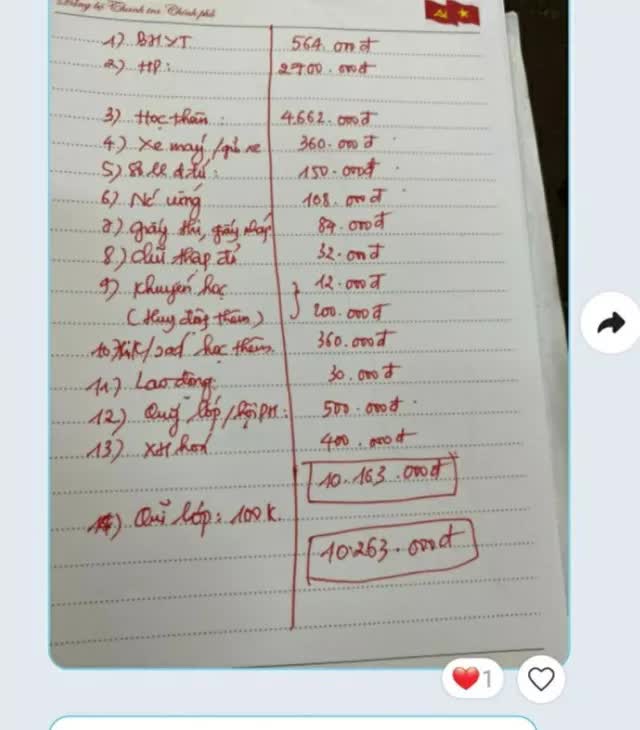 Đảng bộ Thanh tra Chính phủ
1) BHYT 564.000đ
2) HP: 2700.000đ
3) Học thêm: 4.662.000đ
4) Xe máy/gửi xe 360.000đ
5) Sổ LL đ.tử: 150.000đ
6) Nc' uống 108.000đ
7) giấy thi, giấy nháp 84.000đ
8) chữ thập đỏ 32.000đ
9) khuyến học 12.000đ
(Huy động thêm) 200.000đ
10) học thêm 360.000đ
11) Lao động 30.000đ
12) Quỹ lớp/hội PH: 500.000đ
13) XH hoá 400.000đ
10.163.000đ
14) Quĩ lớp: 100k.
10.263.000đ
1